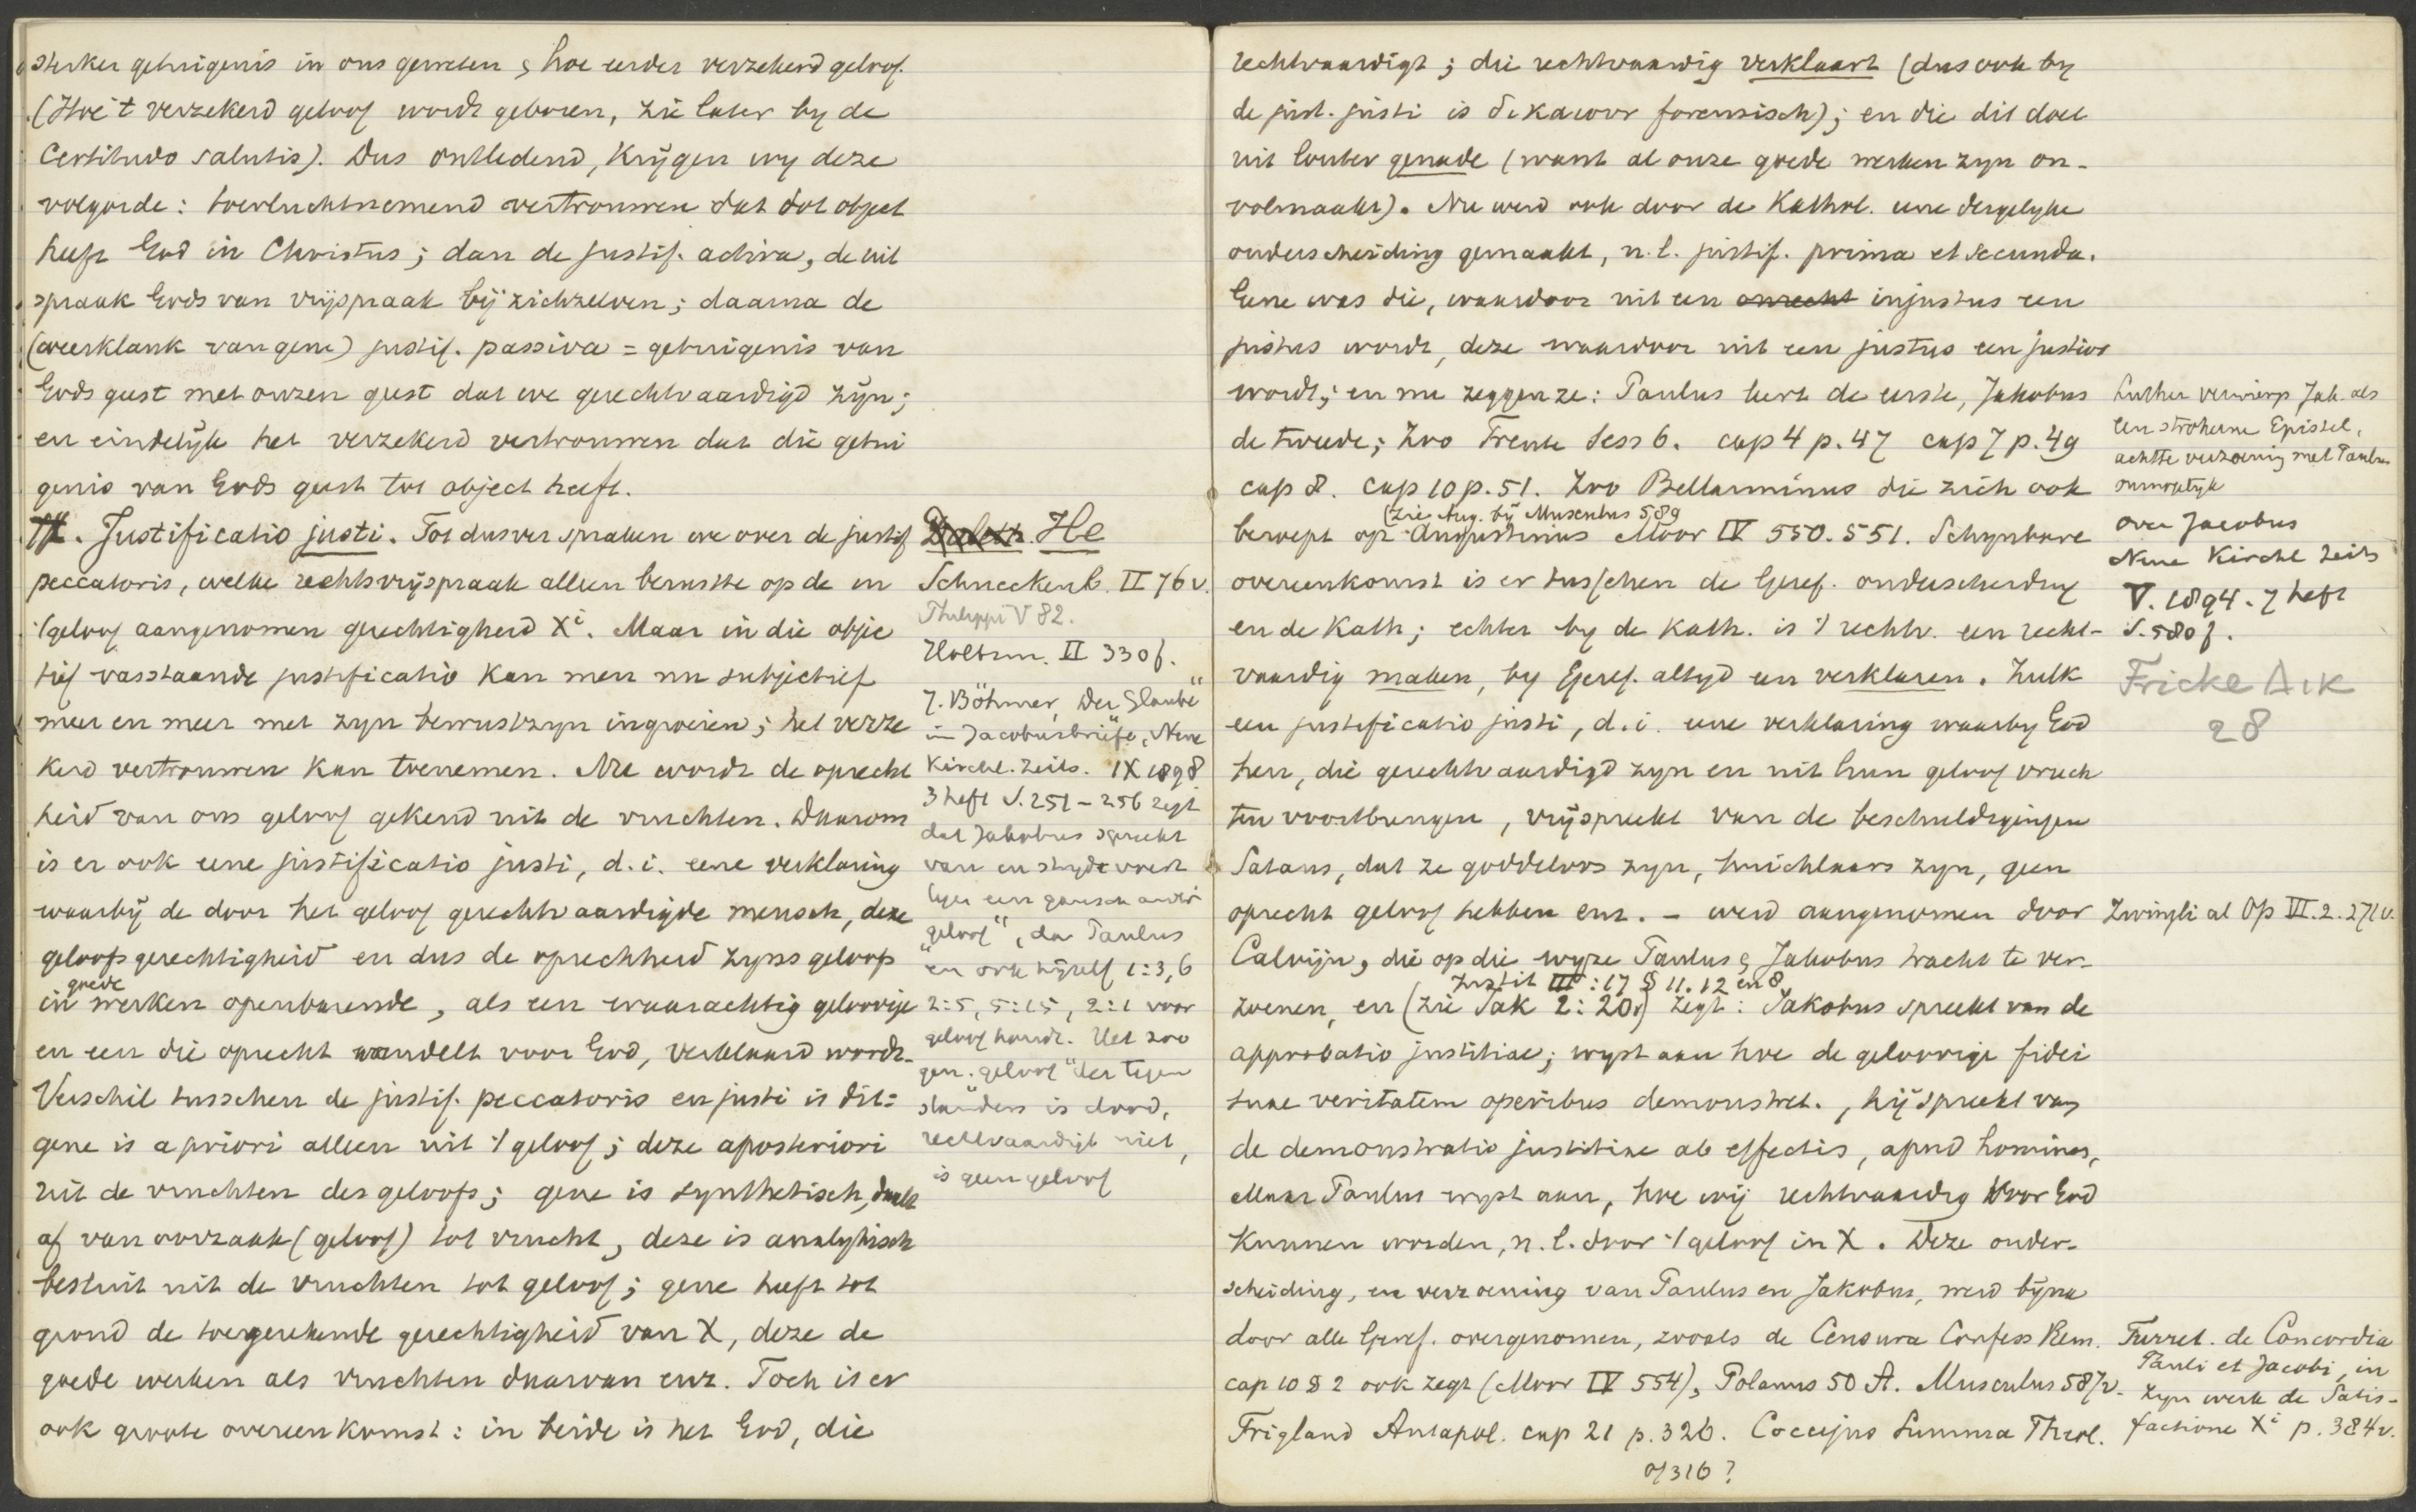 sterker getuigenis in ons geweten & hoe eerder verzekerd geloof.
(Hoe 't verzekerd geloof wordt geboren, zie later by de
Certitudo salutis). Dus ontledend, krijgen wy deze
volgorde: toevluchtnemend vertrouwen dat tot object
heeft God in Christus; dan de justif. activa, de uit
spraak Gods van vrijspraak bij zichzelven; daarna de
(weerklank van gene) justif. passiva = getuigenis van
Gods geest met onzen geest dat we gerechtvaardigd zijn;
en eindelijk het verzekerd vertrouwen dat die getui
genis van Gods geest tot object heeft.
Justificatio justi. Tot dusver spraken we over de justif
peccatoris, welke rechtsvrijspraak alleen berustte op de in
't geloof aangenomen gerechtigheid Xi. Maar in die objec
tief vaststaande justificatio kan men nu subjectief
meer en meer met zyn bewustzyn ingroeien; het verze
kerd vertrouwen kan toenemen. Nu wordt de oprecht
heid van ons geloof gekend uit de vruchten. Daarom
is er ook eene justificatio justi, d.i. eene verklaring
waarbij de door het geloof gerechtvaardigde mensch, deze
geloofsgerechtigheid en dus de oprechtheid zyns geloofs
in goede werken openbarende, als een waarachtig geloovige
en een die oprecht wandelt voor God, verklaard wordt.
Verschil tusschen de justif. peccatoris en justi is dit:
gene is a priori alleen uit 't geloof; deze aposteriori
uit de vruchten des geloofs; gene is synthetisch, daalt
af van oorzaak (geloof) tot vrucht, deze is analytisch
besluit uit de vruchten tot geloof; gene heeft tot
grond de toegerekende gerechtigheid van X, deze de
goede werken als vruchten daarvan enz. Toch is er
ook groote overeenkomst: in beide is het God, die
He
Schneckenb. II 76 v.
Philippi V 82.
Holtzm. II 330 f.
J. Böhmer, Der Glaube"
im Jacobusbriefe, Neue
Kirchl. Zeits. IX 1898
3 heft S. 251-256 zegt
dat Jakobus spreekt
van en strydt voert
tegen een gansch ander
"geloof", dan Paulus
en ook hijzelf 1:3,6
2:5, 5:15, 2:1 voor
geloof houdt. Het zoo
gen. "geloof" der tegen
standers is dood,
rechtvaardigt niet,
is geen geloof
rechtvaardigt; die rechtvaardig verklaart (dus ook by
de just. justi is δικαιουν forensisch); en die dit doet
uit louter genade (want al onze goede werken zyn on-
volmaakt). Nu werd ook door de Kathol. eene dergelyke
onderscheiding gemaakt, n.l. justif. prima et secunda.
Gene was die, waardoor uit een onrecht injustus een
justus wordt, deze waardoor uit een justus een justior
wordt; en nu zeggen ze: Paulus leert de eerste, Jakobus
de tweede; Zoo Trente Sess 6. cap 4 p. 47 cap 7 p. 49
cap 8. cap 10 p. 51. Zoo Bellarminus die zich ook
(zie Aug. bij Musculus 589
beroept op Augustinus Moor IV 550. 551. Schynbare
overeenkomst is er tusschen de Geref. onderscheiding
en de Kath; echter by de Kath. is 't rechtv. een recht-
vaardig maken, by Geref. altyd een verklaren. Zulk
een justificatio justi, d.i. eene verklaring waarby God
hen, die gerechtvaardigd zyn en uit hun geloof vruch
ten voortbrengen, vrijspreekt van de beschuldigingen
Satans, dat ze goddeloos zyn, huichlaars zyn, geen
oprecht geloof hebben enz. - werd aangenomen door
Calvijn, die op die wyze Paulus & Jakobus tracht te ver-
Instit III:17 § 11. 12 en 8
zoenen, en (zie Jak 2:20v) zegt: Jakobus spreekt van de
approbatio justitiae; wyst aan hoe de geloovige fidei
suae veritatem operibus demonstret., hij spreekt van
de demonstratio justitiae ab effectis, apud homines,
Maar Paulus wyst aan, hoe wij rechtvaardig voor God
kunnen worden, n.l. door 't geloof in X. Deze onder-
scheiding, en verzoening van Paulus en Jakobus, werd bijna
door alle Geref. overgenomen, zooals de Censura Confess Rem.
cap 10 § 2 ook zegt (Moor IV 554), Polanus 50 A. Musculus 587v.
Trigland Antapol. cap 21 p. 326. Coccejus Summa Theol.
of 316?
Luther verwierp Jak. als
een strooherne Epistel,
achtte verzoening met Paulus
onmogelyk
over Jacobus
Neue Kirchl Zeits
V. 1894. 7 heft
S. 580 f.
Fricke
28
Zwingli al Op VI. 2. 271v.
Turret. de Concordia
Pauli et Jacobi, in
zyn werk de Satis-
factione Xi p. 384v.